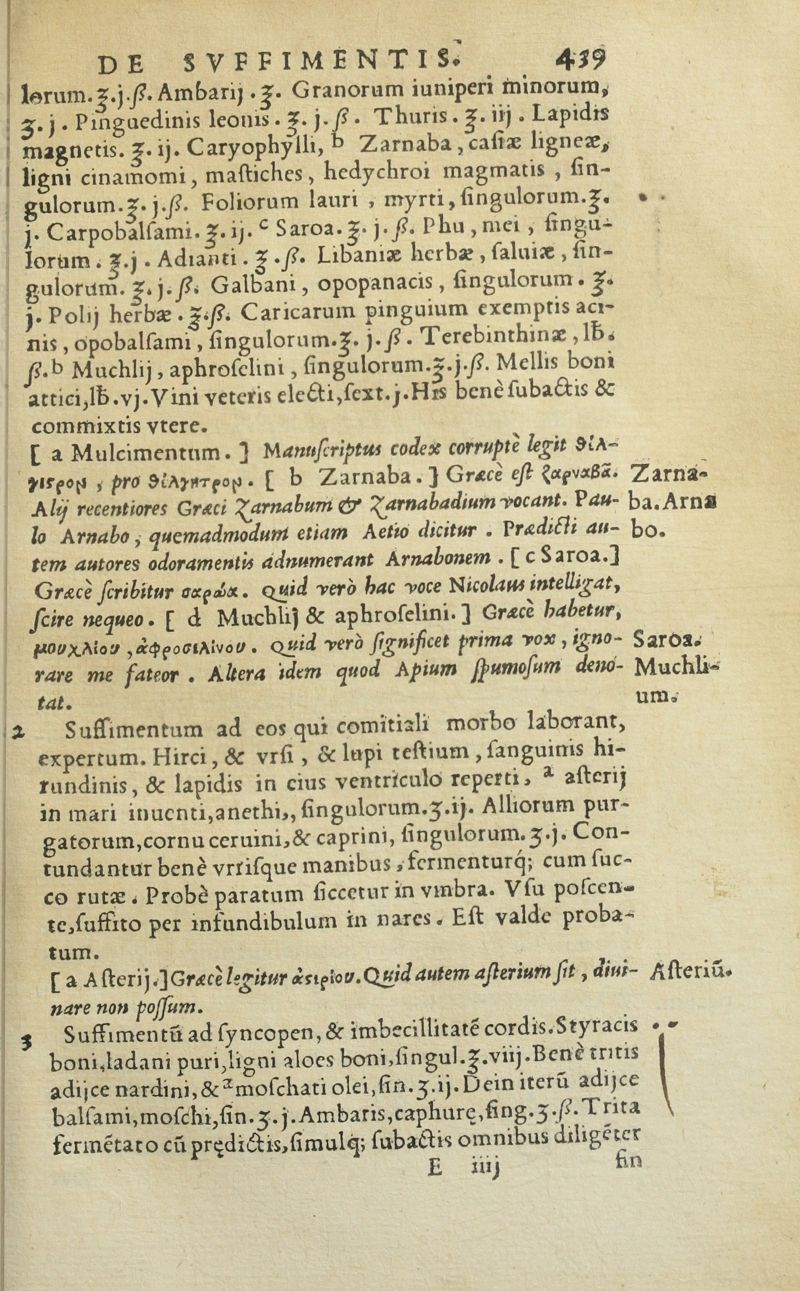 DE SVFFIMENTIS. 439
lorum.ʒ.j.ß. Ambarij .ʒ. Granorum iuniperi minorum,
ʒ. j . Pinguedinis leonis . ʒ. j. ß . Thuris . ʒ. iij . Lapidis
magnetis. ʒ. ij. Caryophylli, b Zarnaba , casiæ ligneæ,
ligni cinamomi, mastiches, hedychroi magmatis , sin-
gulorum.ʒ. j.ß. Foliorum lauri , myrti, singulorum.ʒ.
j. Carpobalsami. ʒ. ij. c Saroa. ʒ. j. ß. Phu , mei , singu-
lorum . ʒ.j . Adianti . ʒ .ß. Libaniæ herbæ , saluiæ , sin-
gulorum. ʒ. j. ß. Galbani , opopanacis , singulorum . ʒ.
j. Polij herbæ . ʒ.ß. Caricarum pinguium exemptis aci-
nis , opobalsami , singulorum.ʒ. j. ß . Terebinthinæ , ℔.
ß.b Muchlij , aphroselini , singulorum.ʒ.j.ß. Mellis boni
attici,℔.vj. Vini veteris electi,sext.j.His benè subactis &
commixtis vtere.
[ a Mulcimentum. ] Manuscriptus codex corruptè legit θίλ-
γιςρον , pro θίλγητρον . [ b Zarnaba. ] Græcè est ζαρναβᾶ.
Zarna-
Alij recentiores Græci Zarnabum & Zarnabadium vocant. Pau-
ba. Arna
lo Arnabo, quemadmodum etiam Aetio dicitur . Prædicti au-
bo.
tem autores odoramentis adnumerant Arnabonem . [ c Saroa.]
Græcè scribitur σαρώα. Quid verò hac voce Nicolaus intelligat,
scire nequeo. [ d Muchlij & aphroselini. ] Græcè habetur,
μουχλίου , ἀφροσιλίνου . Quid verò significet prima vox , igno-
Saroa.
rare me fateor . Altera idem quod Apium spumosum deno-
Muchli-
tat.
um.
2 Suffimentum ad eos qui comitiali morbo laborant,
expertum. Hirci, & vrsi , & lupi testium , sanguinis hi-
rundinis, & lapidis in eius ventriculo reperti, a asterij
in mari inuenti,anethi,, singulorum.ʒ.ij. Alliorum pur-
gatorum,cornu ceruini,& caprini, singulorum. ʒ.j. Con-
tundantur benè vrrisque manibus , fermenturq; cum suc-
co rutæ . Probè paratum siccetur in vmbra. Vsu poscen-
te,suffito per infundibulum in nares . Est valde proba-
tum.
[ a Asterij.]Græcè legitur ἀςερίου.Quid autem asterium sit , diui-
Asteriū.
nare non possum.
3 Suffimentū ad syncopen, & imbecillitatē cordis.Styracis
boni,ladani puri,ligni aloes boni,singul.ʒ.viij.Benè tritis
adijce nardini,& a moschati olei,sin.ʒ.ij. Dein iterū adijce
balsami,moschi,sin.ʒ.j.Ambaris,caphurę,sing.ʒ.ß.Trita
fermētato cū prędictis,simulq; subactis omnibus diligēter
E iiij fin